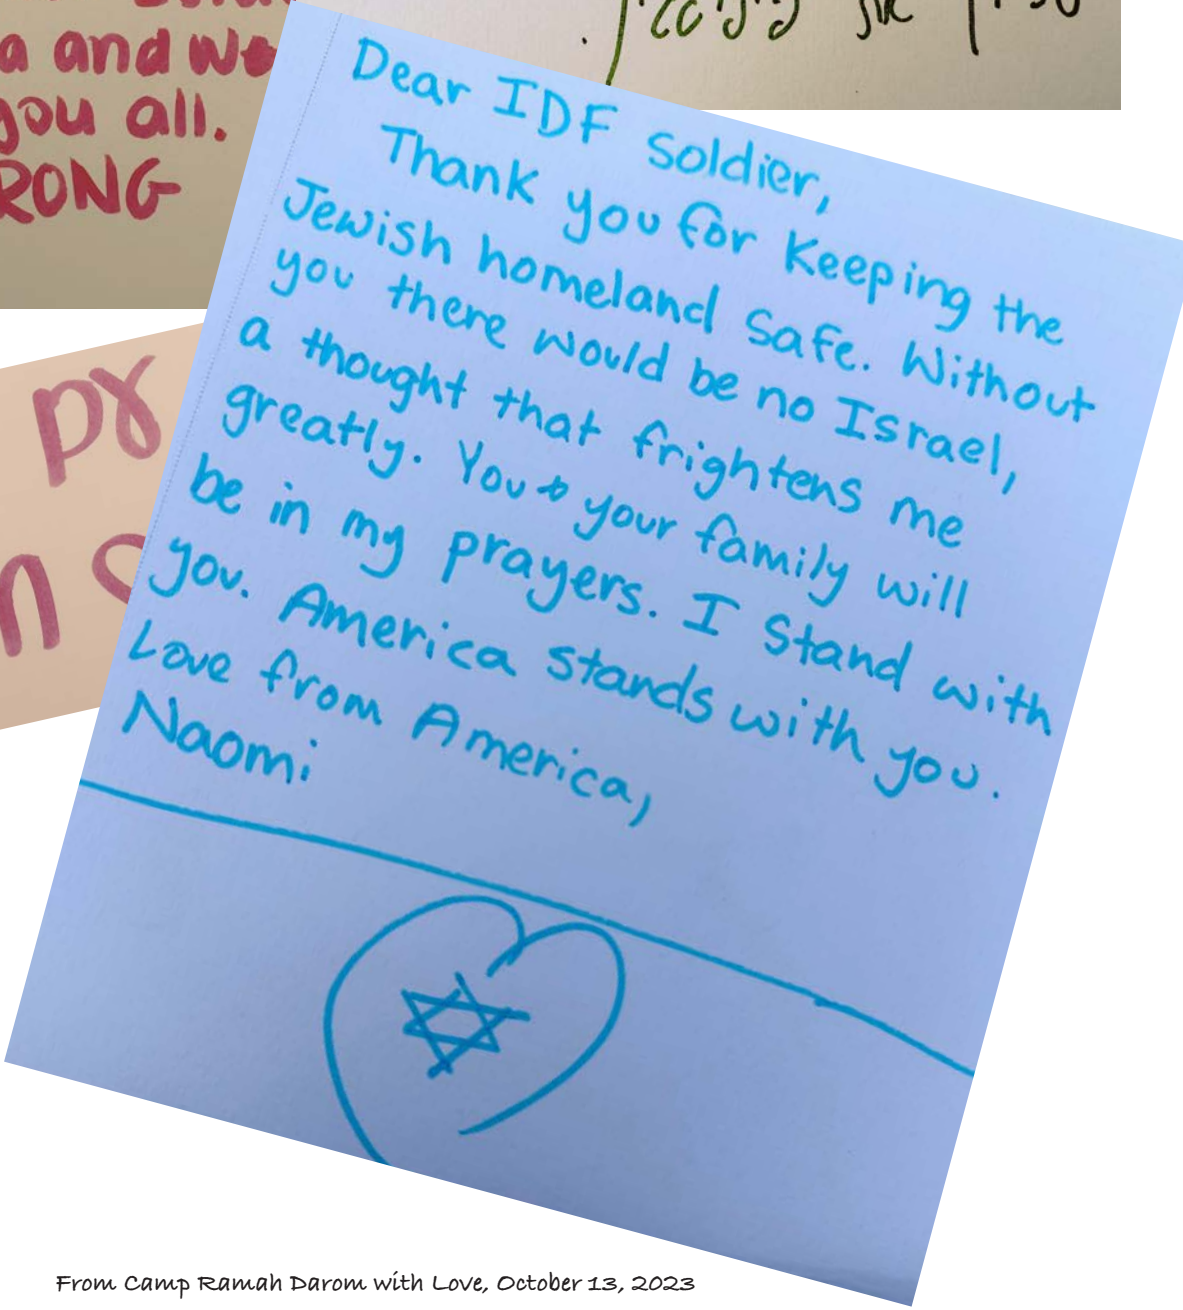 a and we
you all.
RONG
Dear IDF Soldier,
Thank you for keeping the
Jewish homeland safe. Without
you there would be no Israel,
a thought that frightens me
greatly. You & your family will
be in my prayers. I stand with
you. America stands with you.
Love from America,
Naomi
From Camp Ramah Darom with Love, October 13, 2023